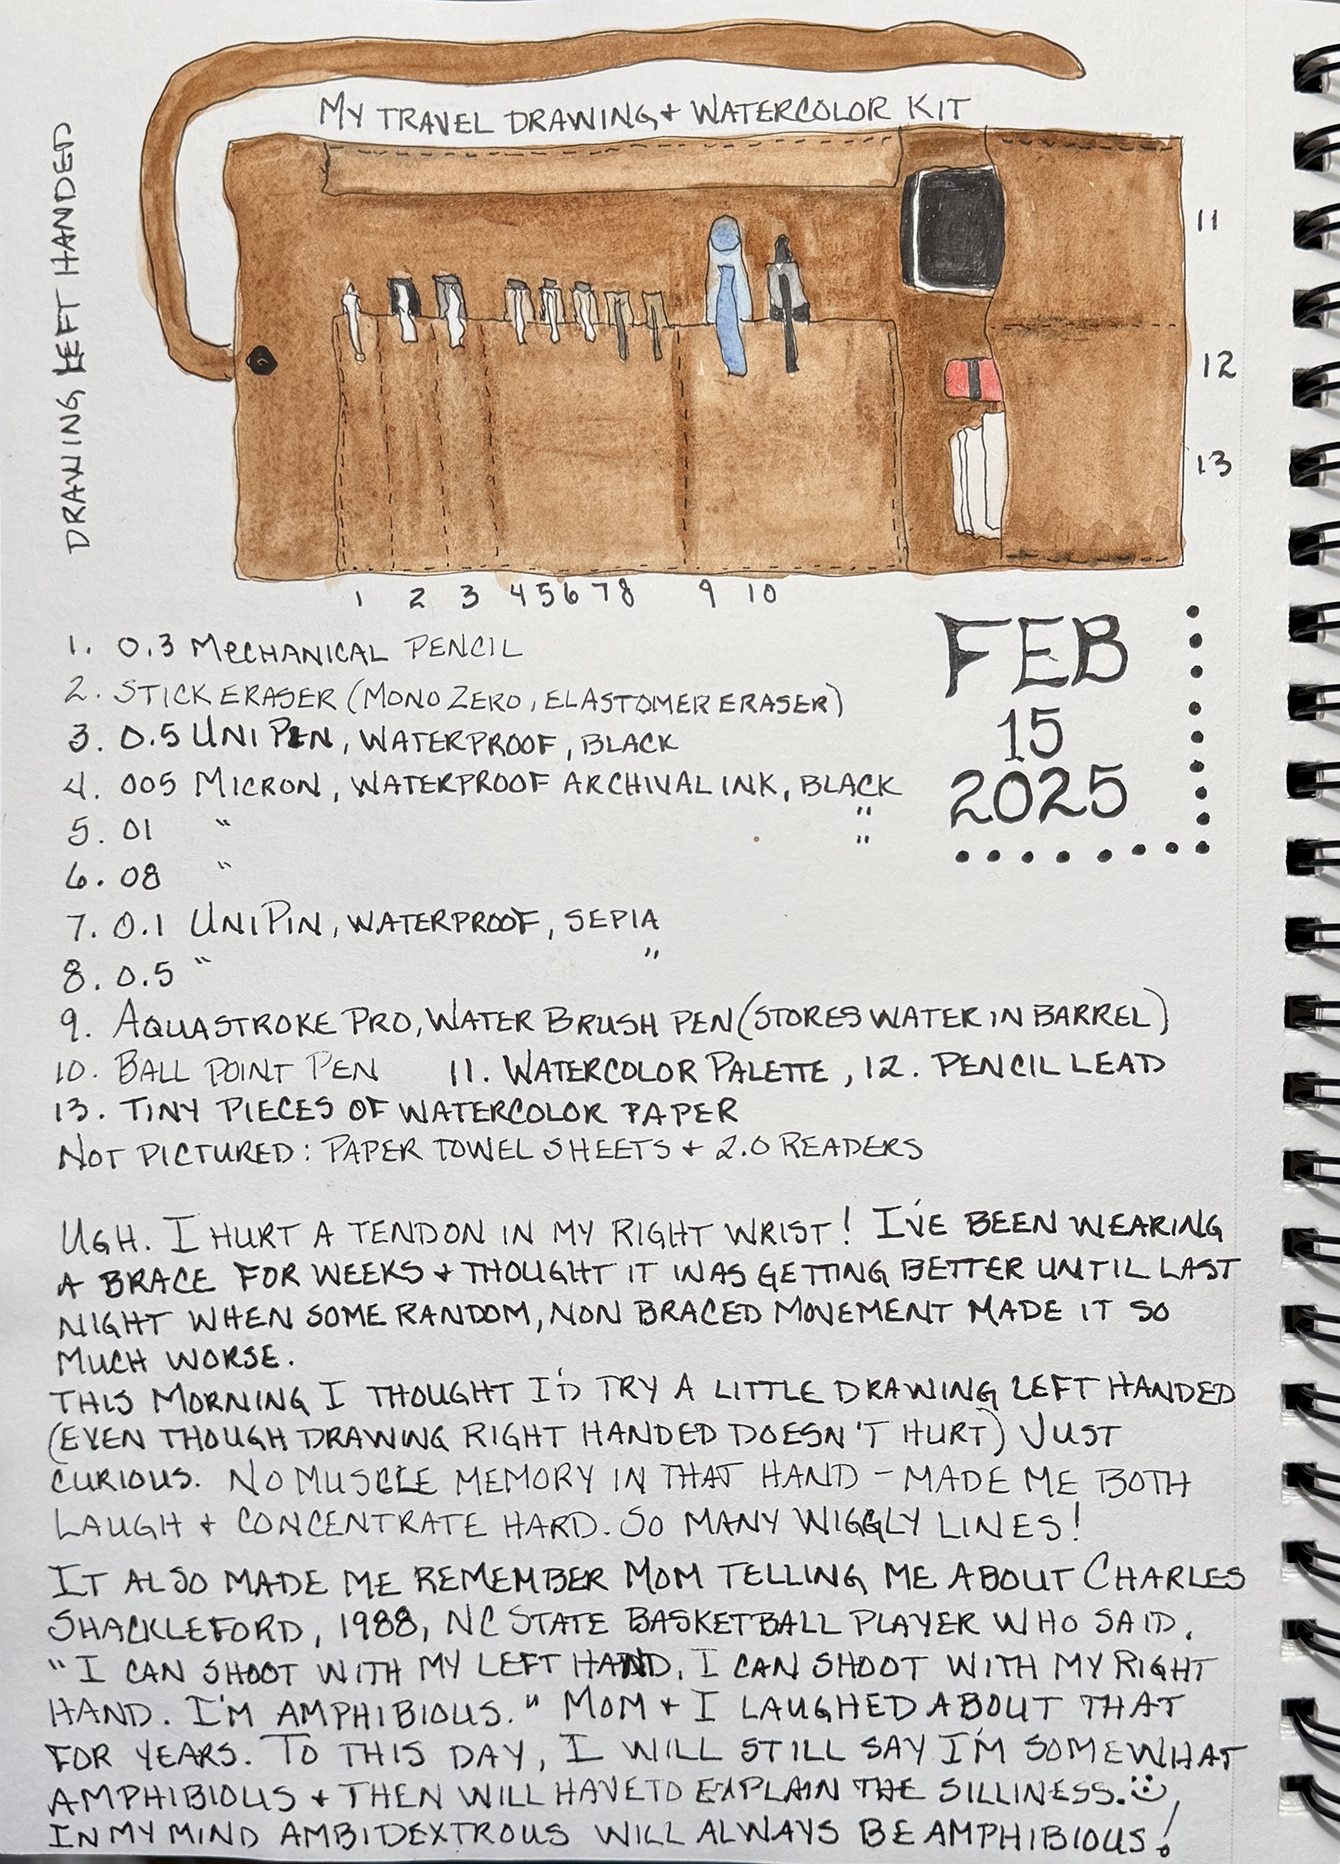 MY TRAVEL DRAWING + WATERCOLOR KIT
DRAWING LEFT HANDED
11
12
13
1 2 3 4 5 6 7 8 9 10
FEB
15
2025
1. 0.3 MECHANICAL PENCIL
2. STICK ERASER (MONO ZERO, ELASTOMER ERASER)
3. 0.5 UNI PEN, WATERPROOF, BLACK
4. 005 MICRON, WATERPROOF ARCHIVAL INK, BLACK
5. 01 " "
6. 08 " "
7. 0.1 UNI PIN, WATERPROOF, SEPIA
8. 0.5 " "
9. AQUASTROKE PRO, WATER BRUSH PEN (STORES WATER IN BARREL)
10. BALL POINT PEN 11. WATERCOLOR PALETTE, 12. PENCIL LEAD
13. TINY PIECES OF WATERCOLOR PAPER
NOT PICTURED: PAPER TOWEL SHEETS + 2.0 READERS
UGH. I HURT A TENDON IN MY RIGHT WRIST! I'VE BEEN WEARING
A BRACE FOR WEEKS + THOUGHT IT WAS GETTING BETTER UNTIL LAST
NIGHT WHEN SOME RANDOM, NON BRACED MOVEMENT MADE IT SO
MUCH WORSE.
THIS MORNING I THOUGHT I'D TRY A LITTLE DRAWING LEFT HANDED
(EVEN THOUGH DRAWING RIGHT HANDED DOESN'T HURT) JUST
CURIOUS. NO MUSCLE MEMORY IN THAT HAND - MADE ME BOTH
LAUGH + CONCENTRATE HARD. SO MANY WIGGLY LINES!
IT ALSO MADE ME REMEMBER MOM TELLING ME ABOUT CHARLES
SHACKLEFORD, 1988, NC STATE BASKETBALL PLAYER WHO SAID,
"I CAN SHOOT WITH MY LEFT HAND, I CAN SHOOT WITH MY RIGHT
HAND. I'M AMPHIBIOUS." MOM + I LAUGHED ABOUT THAT
FOR YEARS. TO THIS DAY, I WILL STILL SAY I'M SOMEWHAT
AMPHIBIOUS + THEN WILL HAVE TO EXPLAIN THE SILLINESS. :)
IN MY MIND AMBIDEXTROUS WILL ALWAYS BE AMPHIBIOUS!